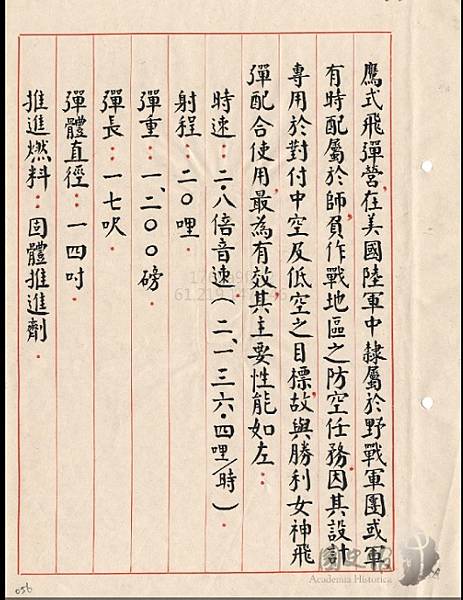 鷹式飛彈營、在美國陸軍中隸屬於野戰軍團或軍
有時配屬於師負作戰地區之防空任務因其設計
專用於對付中空及低空之目標故與勝利女神飛
彈配合使用最為有效其主要性能如左：
時速：二.八倍音速（二、一三六.四哩/時）.
射程：二〇哩.
彈重：一、二〇〇磅.
彈長：一七呎.
彈體直徑：一四吋.
推進燃料：固體推進劑.
056
國史館
Academia Historica